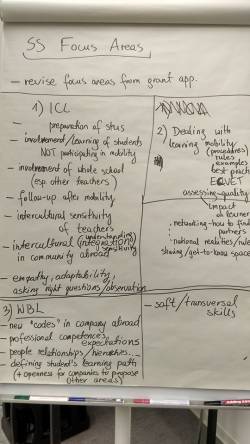 SS Focus Areas
- revise focus areas from grant app.
1) ICL
- preparation of stus
- involvement/learning of students
NOT participating in mobility
- involvement of whole school
(esp other teachers)
- follow-up after mobility
- intercultural sensitivity
of teachers
- intercultural (integration) understanding sensitivity
in community abroad
- empathy, adaptability,
asking right questions/observation
2) Dealing with
learning mobility
(procedures)
rules
examples
best pract
ECVET
assessing-quality
impact
on learner
networking - how to find
partners
national realities/rules
sharing/get-to-know space
3) WBL
- new "codes" in company abroad
- professional competences,
expectations
- people relationships/hierarchies...
- defining student's learning path
(+ openness for companies to propose
other areas)
- soft/transversal
skills